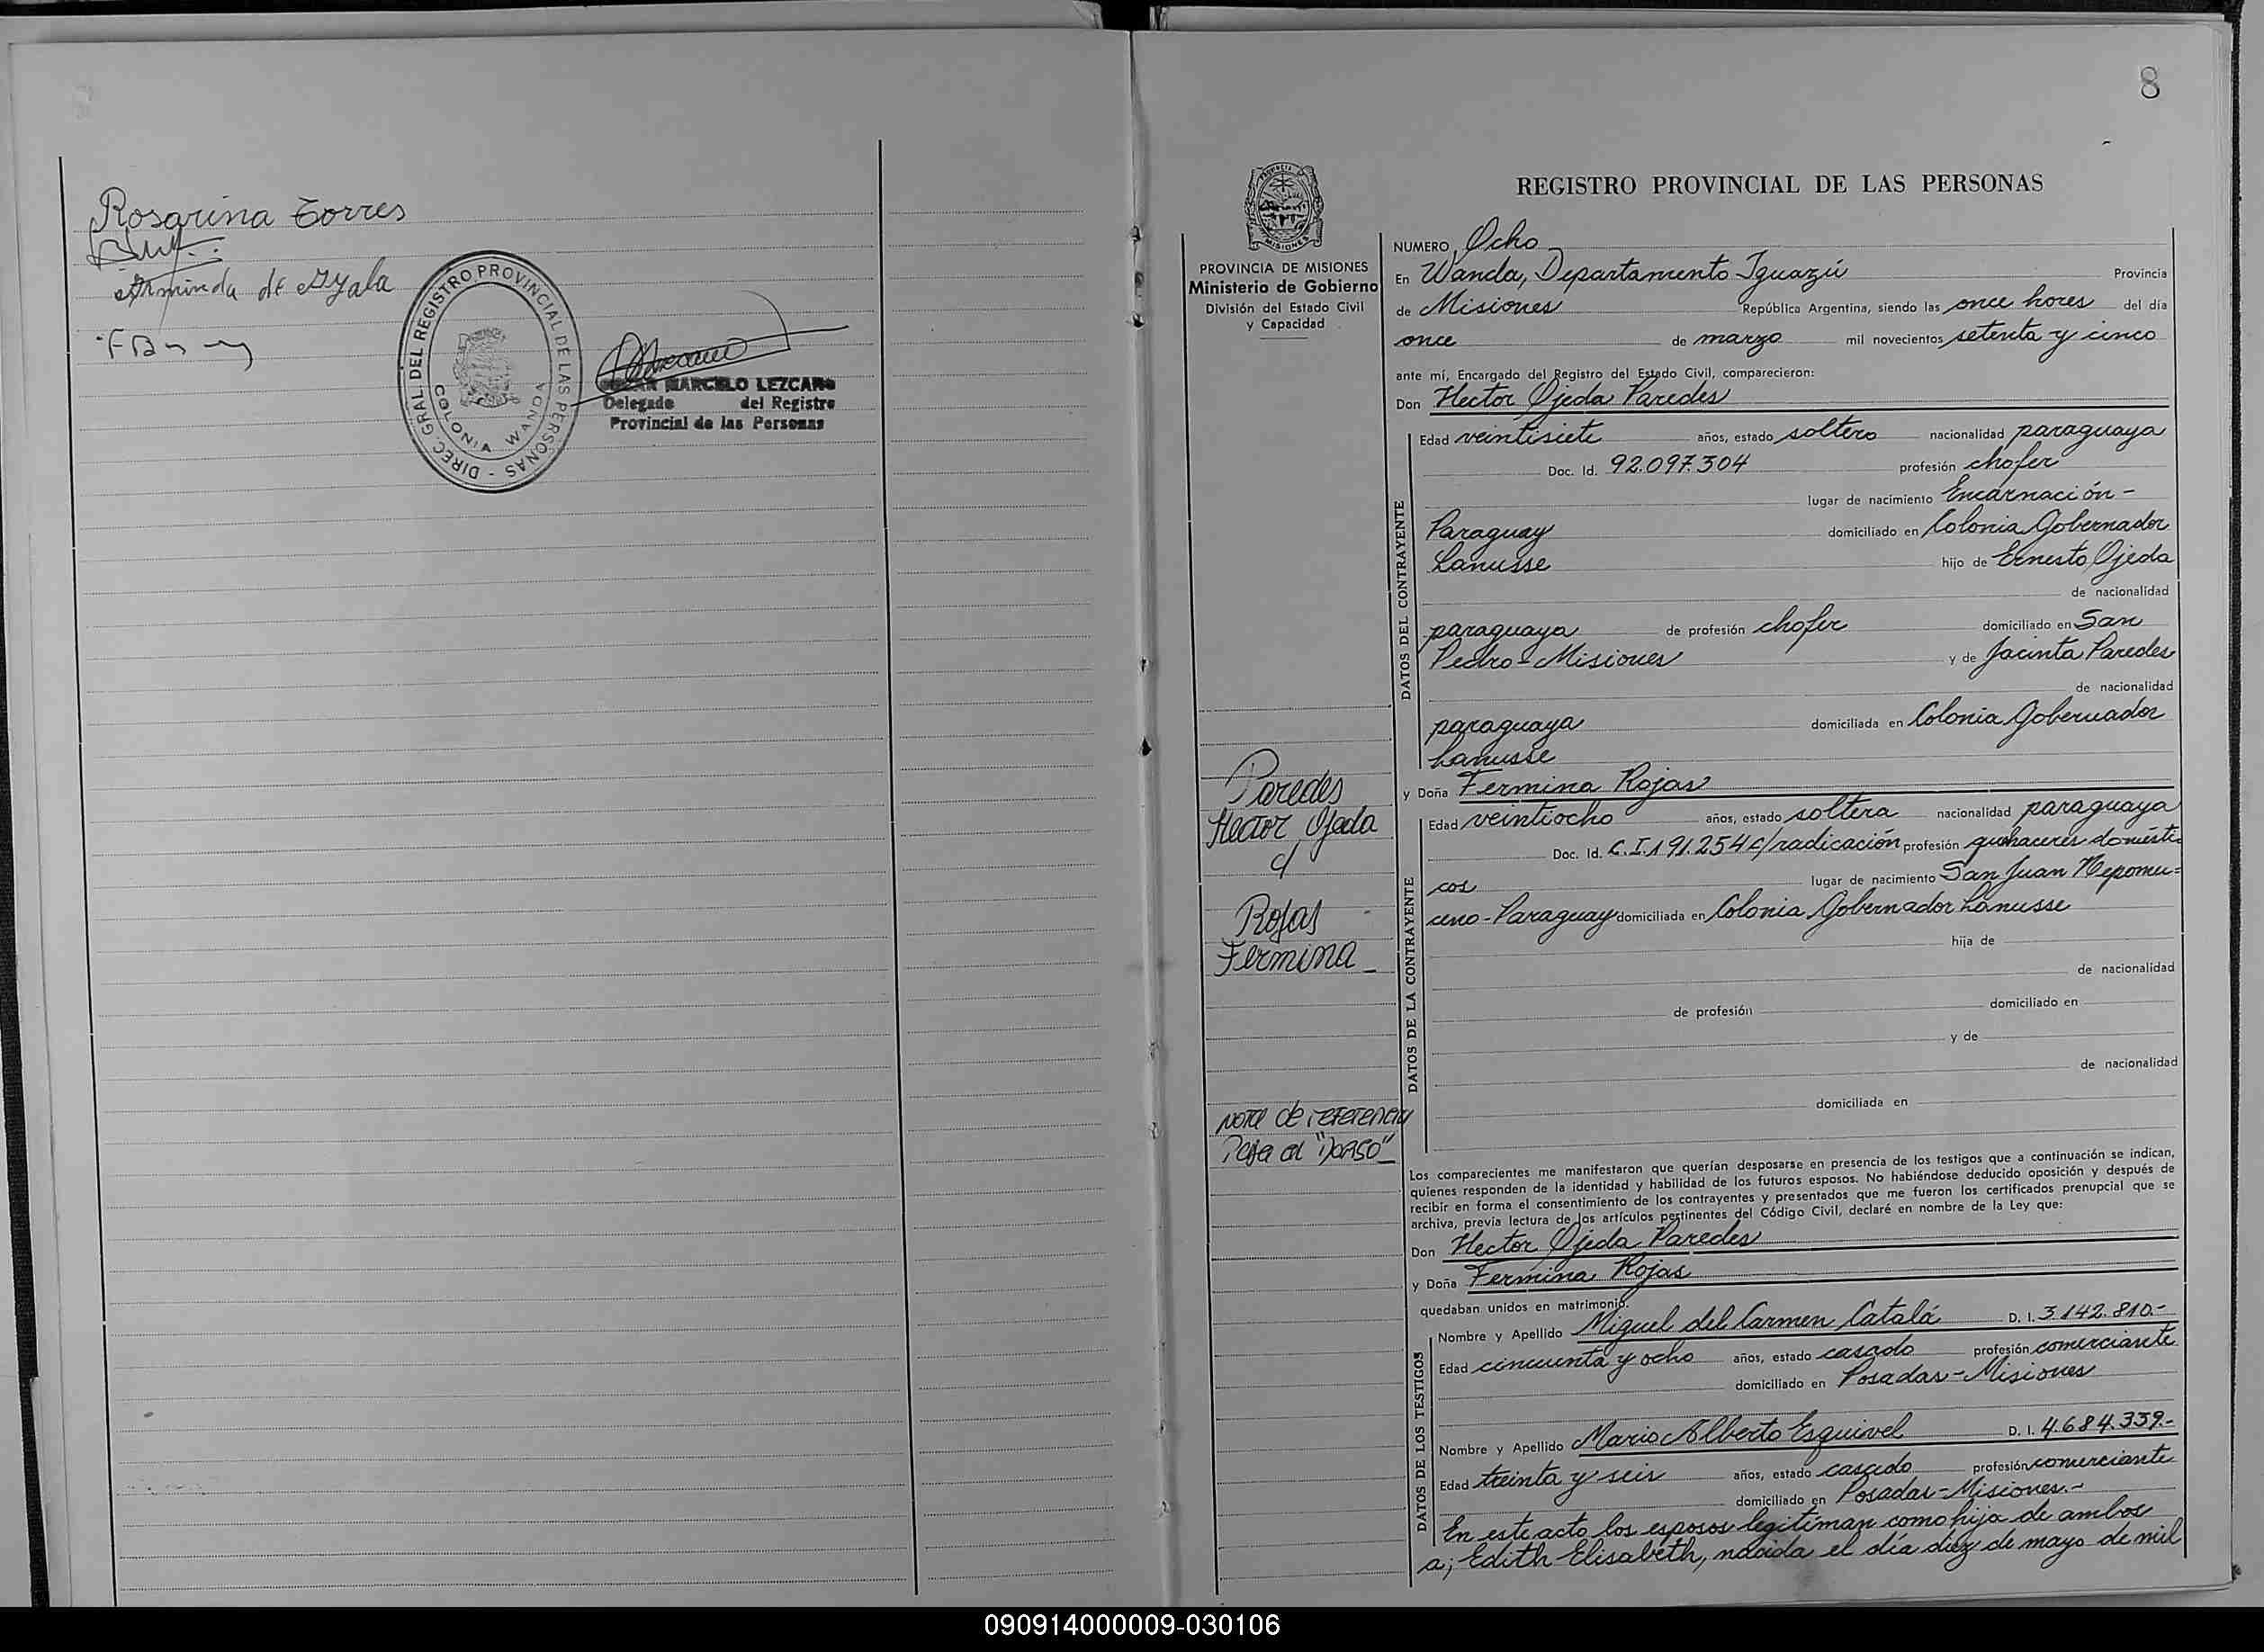 Rosarina Torres
Arminda de Ayala
DIREC. GRAL. DEL REGISTRO PROVINCIAL DE LAS PERSONAS -
COLONIA WANDA
MARCELO LEZCANO
Delegado del Registro
Provincial de las Personas
8
PROVINCIA DE MISIONES
Ministerio de Gobierno
División del Estado Civil
y Capacidad
Paredes
Hector Ojeda
c/
Rojas
Fermina
Nota de referencia
Pasa al "Dorso"
REGISTRO PROVINCIAL DE LAS PERSONAS
NUMERO Ocho
En Wanda, Departamento Iguazú Provincia
de Misiones República Argentina, siendo las once hores del día
once de marzo mil novecientos setenta y cinco
ante mí, Encargado del Registro del Estado Civil, comparecieron:
Don Hector Ojeda Paredes
DATOS DEL CONTRAYENTE
Edad veintisiete años, estado soltero nacionalidad paraguaya
Doc. Id. 92.097.304 profesión chofer
lugar de nacimiento Encarnación-
Paraguay domiciliado en Colonia Gobernador
Lanusse hijo de Ernesto Ojeda
de nacionalidad
paraguaya de profesión chofer domiciliado en San
Pedro-Misiones y de Jacinta Paredes
de nacionalidad
paraguaya domiciliada en Colonia Gobernador
Lanusse
y Doña Fermina Rojas
DATOS DE LA CONTRAYENTE
Edad veintiocho años, estado soltera nacionalidad paraguaya
Doc. Id. C.I.191.254 c/radicación profesión quehaceres domésti
cos lugar de nacimiento San Juan Nepomu=
ceno-Paraguay domiciliada en Colonia Gobernador Lanusse
hija de
de nacionalidad
de profesión domiciliado en
y de
de nacionalidad
domiciliada en
Los comparecientes me manifestaron que querían desposarse en presencia de los testigos que a continuación se indican,
quienes responden de la identidad y habilidad de los futuros esposos. No habiéndose deducido oposición y después de
recibir en forma el consentimiento de los contrayentes y presentados que me fueron los certificados prenupcial que se
archiva, previa lectura de los artículos pertinentes del Código Civil, declaré en nombre de la Ley que:
Don Hector Ojeda Paredes
y Doña Fermina Rojas
quedaban unidos en matrimonio.
DATOS DE LOS TESTIGOS
Nombre y Apellido Miguel del Carmen Catalá D. I. 3.142.810.-
Edad cincuenta y ocho años, estado casado profesión comerciante
domiciliado en Posadas-Misiones
Nombre y Apellido Mario Alberto Esquivel D. I. 4.684.339.-
Edad treinta y seis años, estado casado profesión comerciante
domiciliado en Posadas-Misiones.-
En este acto los esposos legitiman como hija de ambos
a; Edith Elisabeth, nacida el día diez de mayo de mil
090914000009-030106